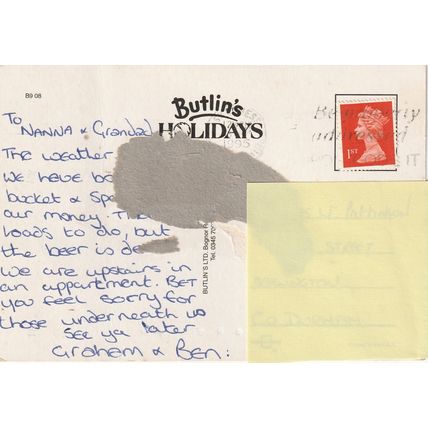 B9 08
Butlin's
HOLIDAYS
1995
1ST
To
NANNA & Grandad
The weather
We have bo
bucket & Spa
our money. Th
loads to do, but
the beer is de
we are upstairs in
an appartment. BET
you feel sorry for
those underneath us
See ya later
Graham & Ben:
BUTLIN'S LTD. Bognor R
Tel. 0345 70
STREET
CO DURHAM